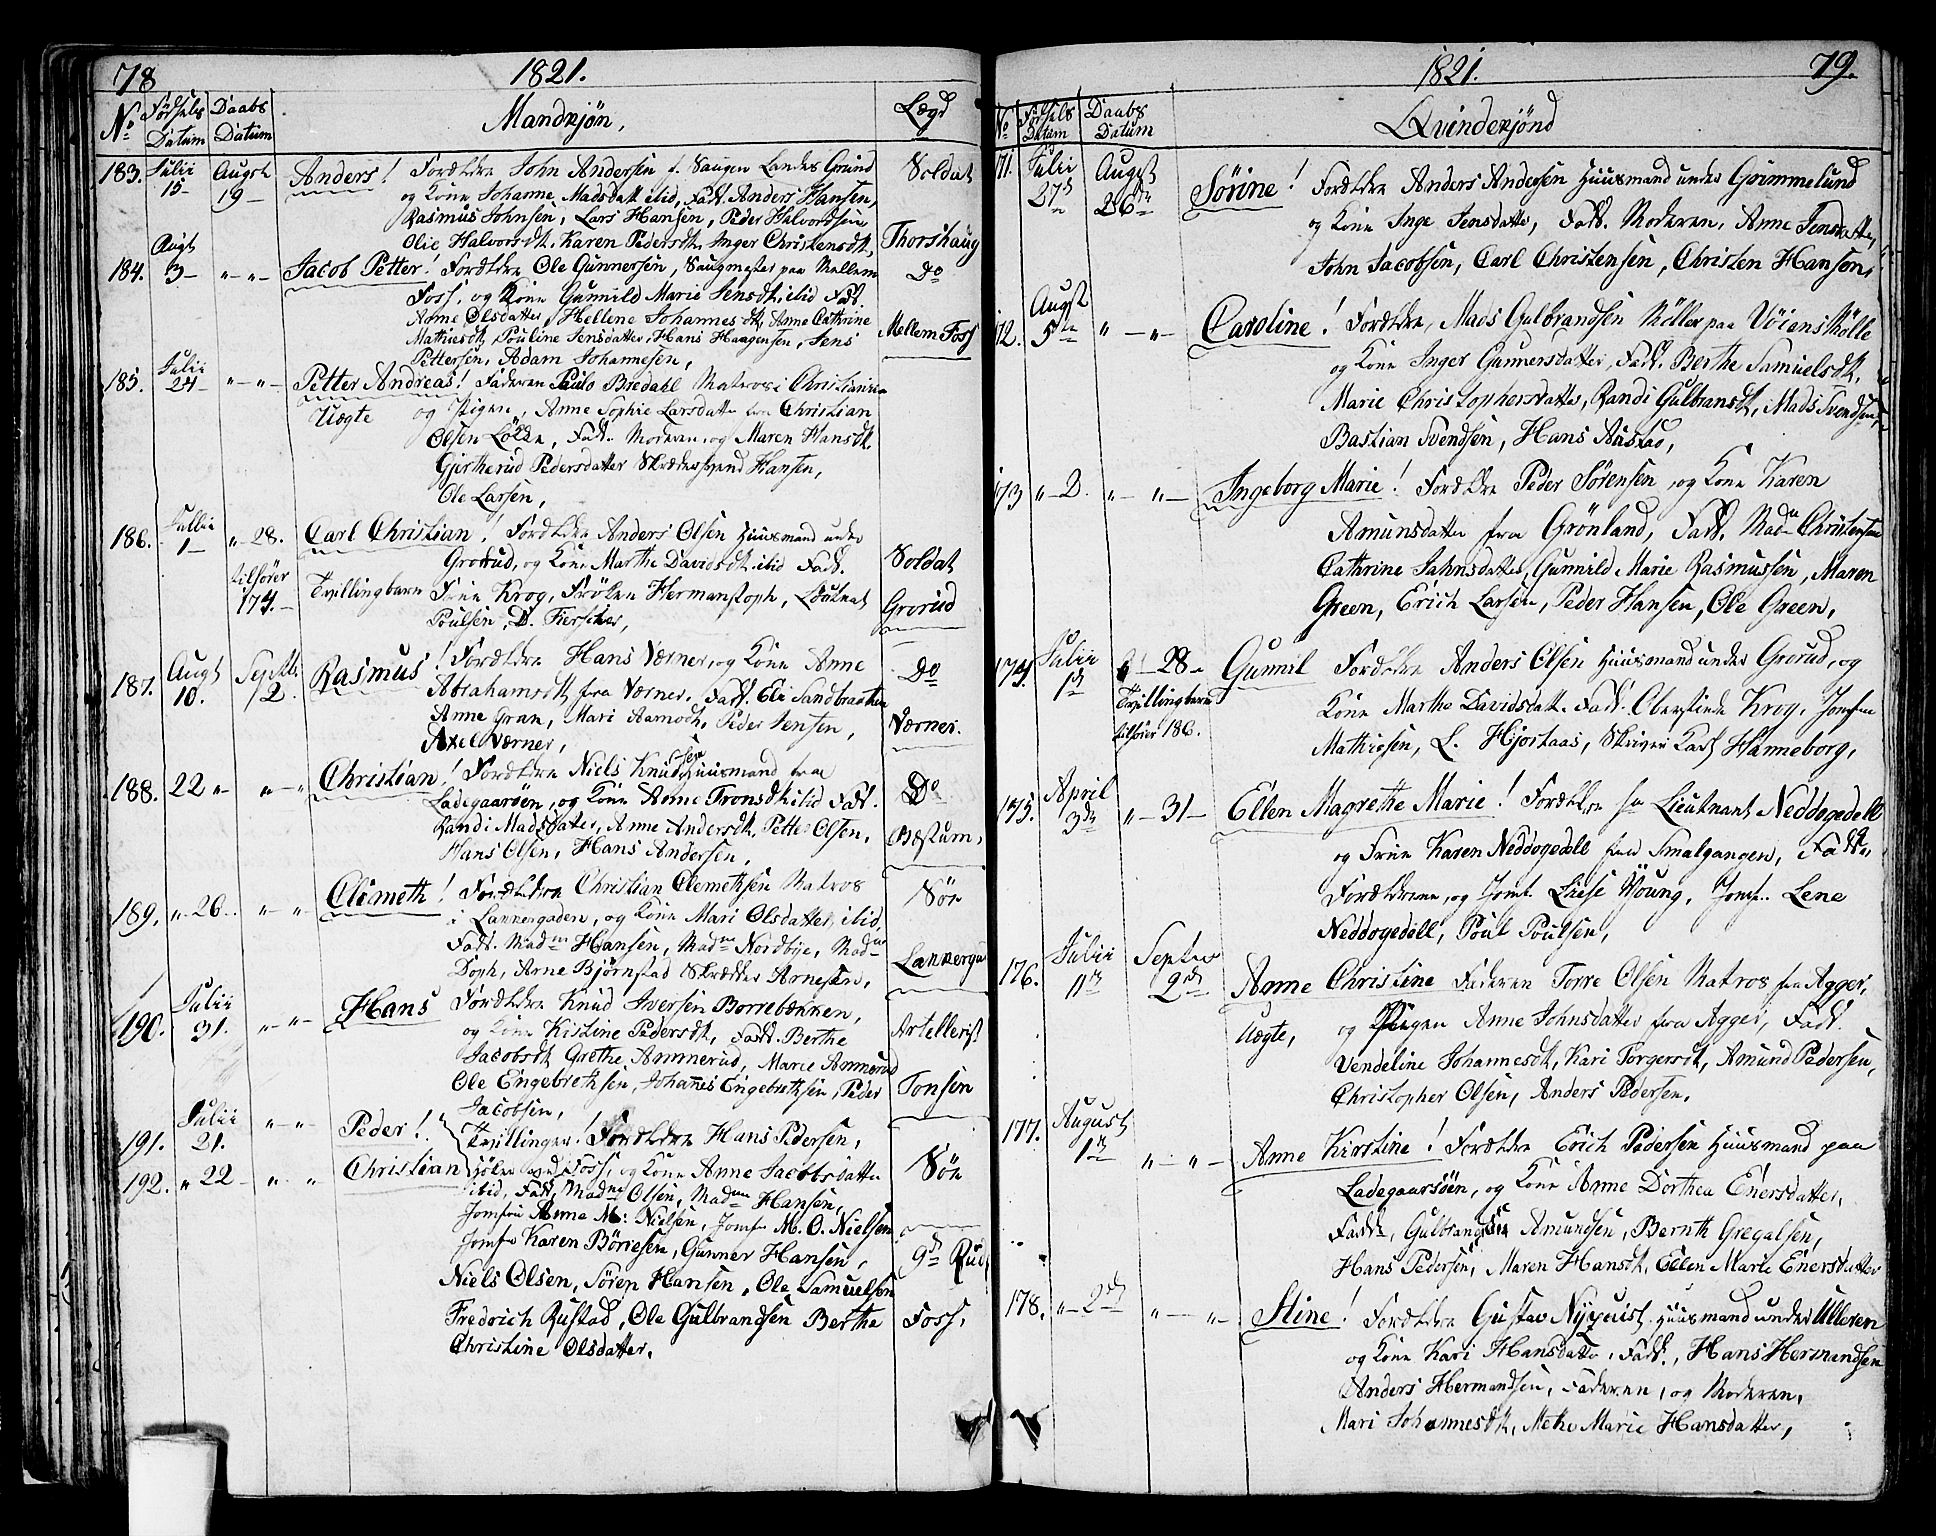 78
1821.
No Fødsels Datum Daabs Datum Mandkjøn, Lægd
183. Julii 15 August 19 Anders! Forældre John Andersen f. Saugen Landes Grund Soldat
og Kone Johanne Madsdatt ibid, Fadd. Anders Hansen,
Rasmus Johnsen, Lars Hansen, Peder Halvordsen
Olie Halvorsdt. Karen Pedersdt, Inger Christensdt, Thorshaug
184. Augt 3 " " Jacob Petter! Forældre Ole Gunnersen, Saugmester paa Mellem Do
Foss, og Kone Gunnild Marie Jensdt. ibid Fad.
Anne Olsdatter, Hellene Johannesdt, Anne Cathrine
Mathiesdt, Pouline Jensdatter, Hans Haagensen, Jens Mellem Foss
Pettersen, Adam Johannesen,
185. Julii 24 " " Petter Andreas! Faderen Paulo Bredahl Matros i Christiania
Uægte og Pigen, Anne Sophie Larsdatter Christian
Olsen Løkke, Fadd. Moderen og Maren Hansdt.
Gjertherud Pedersdatter Skrædersvend Hansen,
Ole Larsen,
186. Jullii 1 " 28. Carl Christian! Forældre Anders Olsen Huusmand under
tilhører 174. Grorud, og Kone Marthe Davidsdt. ibid Fadd. Soldat
Tvillingbarn Frue Krog, Frøken Hermanstoph, Leutnat Grorud
Poulsen, D.
187. Augt 10. Septb 2 Rasmus! Forældre Hans Værner, og Kone Anne Do
Abrahamsdt fra Værner. Fadd. Eli Sandbraathen
Anne Gran, Mari Aamodt, Peder Jensen, Værner.
Axel Værner,
188. 22 " " " Christian! Forældre Niels Knudsen Huusmand fra Do
Ladegaarsøen, og Kone Anne Tronsdt. ibid Fad.
Randi Madsdatter, Anne Andersdt, Petter Olsen, Bestum,
Hans Olsen, Hans Andersen,
189. " 26. " " Clemeth! Forældre Christian Clemethsen Matros Sør
i Lakkergaden, og Kone Mari Olsdatter, ibid,
Fadd. Madm Hansen, Madm Nordbye, Madm
Doph, Arne Bjørnstad Skrædder Arnesen, Lakkerga
190. Julii 31. " " Hans Forældre Knud Iversen Borrebækken,
og Kone Kistine Pedersdt, Fadd. Berthe Artellerist
Jacobsdt Grethe Ammerud, Marie Ammerud
Ole Engebrethsen, Johannes Engebrethsen, Peder Tonsen
Jacobsen,
191. Julii 21. " " Peder! Tvillinger! Forældre Hans Pedersen,
192. " 22 " " Christian Foss, og Kone Anne Jacobsdatter Sør
ibid, Fadd. Madme Olsen, Madm Hansen,
Jomfru Anne M: Nielsen, Jomfr M. O. Nielsen
Jomfr Karen Børresen, Gunner Hansen, 9de Rud,
Niels Olsen, Søren Hansen, Ole Samuelsen
Fredrich Rustad, Ole Gulbrandsen Berthe Foss,
Christine Olsdatter.
1821. 79.
No Fødsels Datum Daabs Datum Qvindekjønd
171. Julii 27de August 26de Sørine! Forældre Anders Andersen Huusmand under Grimmelund
og Kone Inge Jensdatter, Fadd. Moderen, Anne Jensdatter,
John Jacobsen, Carl Christensen, Christen Hansen,
172. Augst 5te " " Caroline! Forældre, Mads Gulbrandsen Møller paa Vøiens Mølle
og Kone Inger Gunnersdatter, Fadd. Berthe Samuelsdt,
Marie Christophersdatter, Randi Gulbransdt, Mads Svendsen,
Bastian Svendsen, Hans Austad,
173 " 2. " " Ingeborg Marie! Forældre Peder Sørensen, og Kone Karen
Amunsdatter fra Grønland, Fadd. Madm Christensen
Cathrine Jahnsdatter, Gunnild Marie Rasmussen, Maren
Green, Erich Larsen, Peder Hansen, Ole Green,
174. Julii 1de 28 Gunnil Forældre Anders Olsen Huusmand under Grorud, og
Tvillingbarn Kone Marthe Davidsdatt. Fadd. Oberstinde Krog, Jomfrue
tilhører 186. Mathiesen, L. Hjortaas, Skriver Karl Hanneborg,
175. April 3de " 31 Ellen Magrethe Marie! Forældre Hr Lieutnant Neddegedell
og Frue Karen Neddogedell fra Smalgangen, Fadde,
Forældrene, og Jomf. Liese Young, Jomf. Lene
Neddogedell, Poul Poulsen,
176. Julii 11te Septer 2de Anne Christine Faderen Torre Olsen Matros fra Agger,
Uægte, og Pigen Anne Johnsdatter fra Agger, Fadd.
Vendeline Johannesdt, Kari Torgersdt, Amund Pedersen,
Christopher Olsen, Anders Pedersen.
177. August 1te " " Anne Kirstine! Forældre Erich Pedersen Huusmand paa
Ladegaarsøen, og Kone Anne Dorthea Enersdatter,
Fadd, Gulbrandsen Amundsen, Bernth Gregalsen,
Hans Pedersen, Maren Hansdt, Ellen Marie Enersdatter
178. " 2de " " Stine! Forældre Gustav Nyquist Huusmand under Ulleren
og Kone Kari Hansdatter, Fadd., Hans Hermandsen
Anders Hermandsen, Faderen, og Moderen,
Mari Johannesdt, Methe Marie Hansdatter,